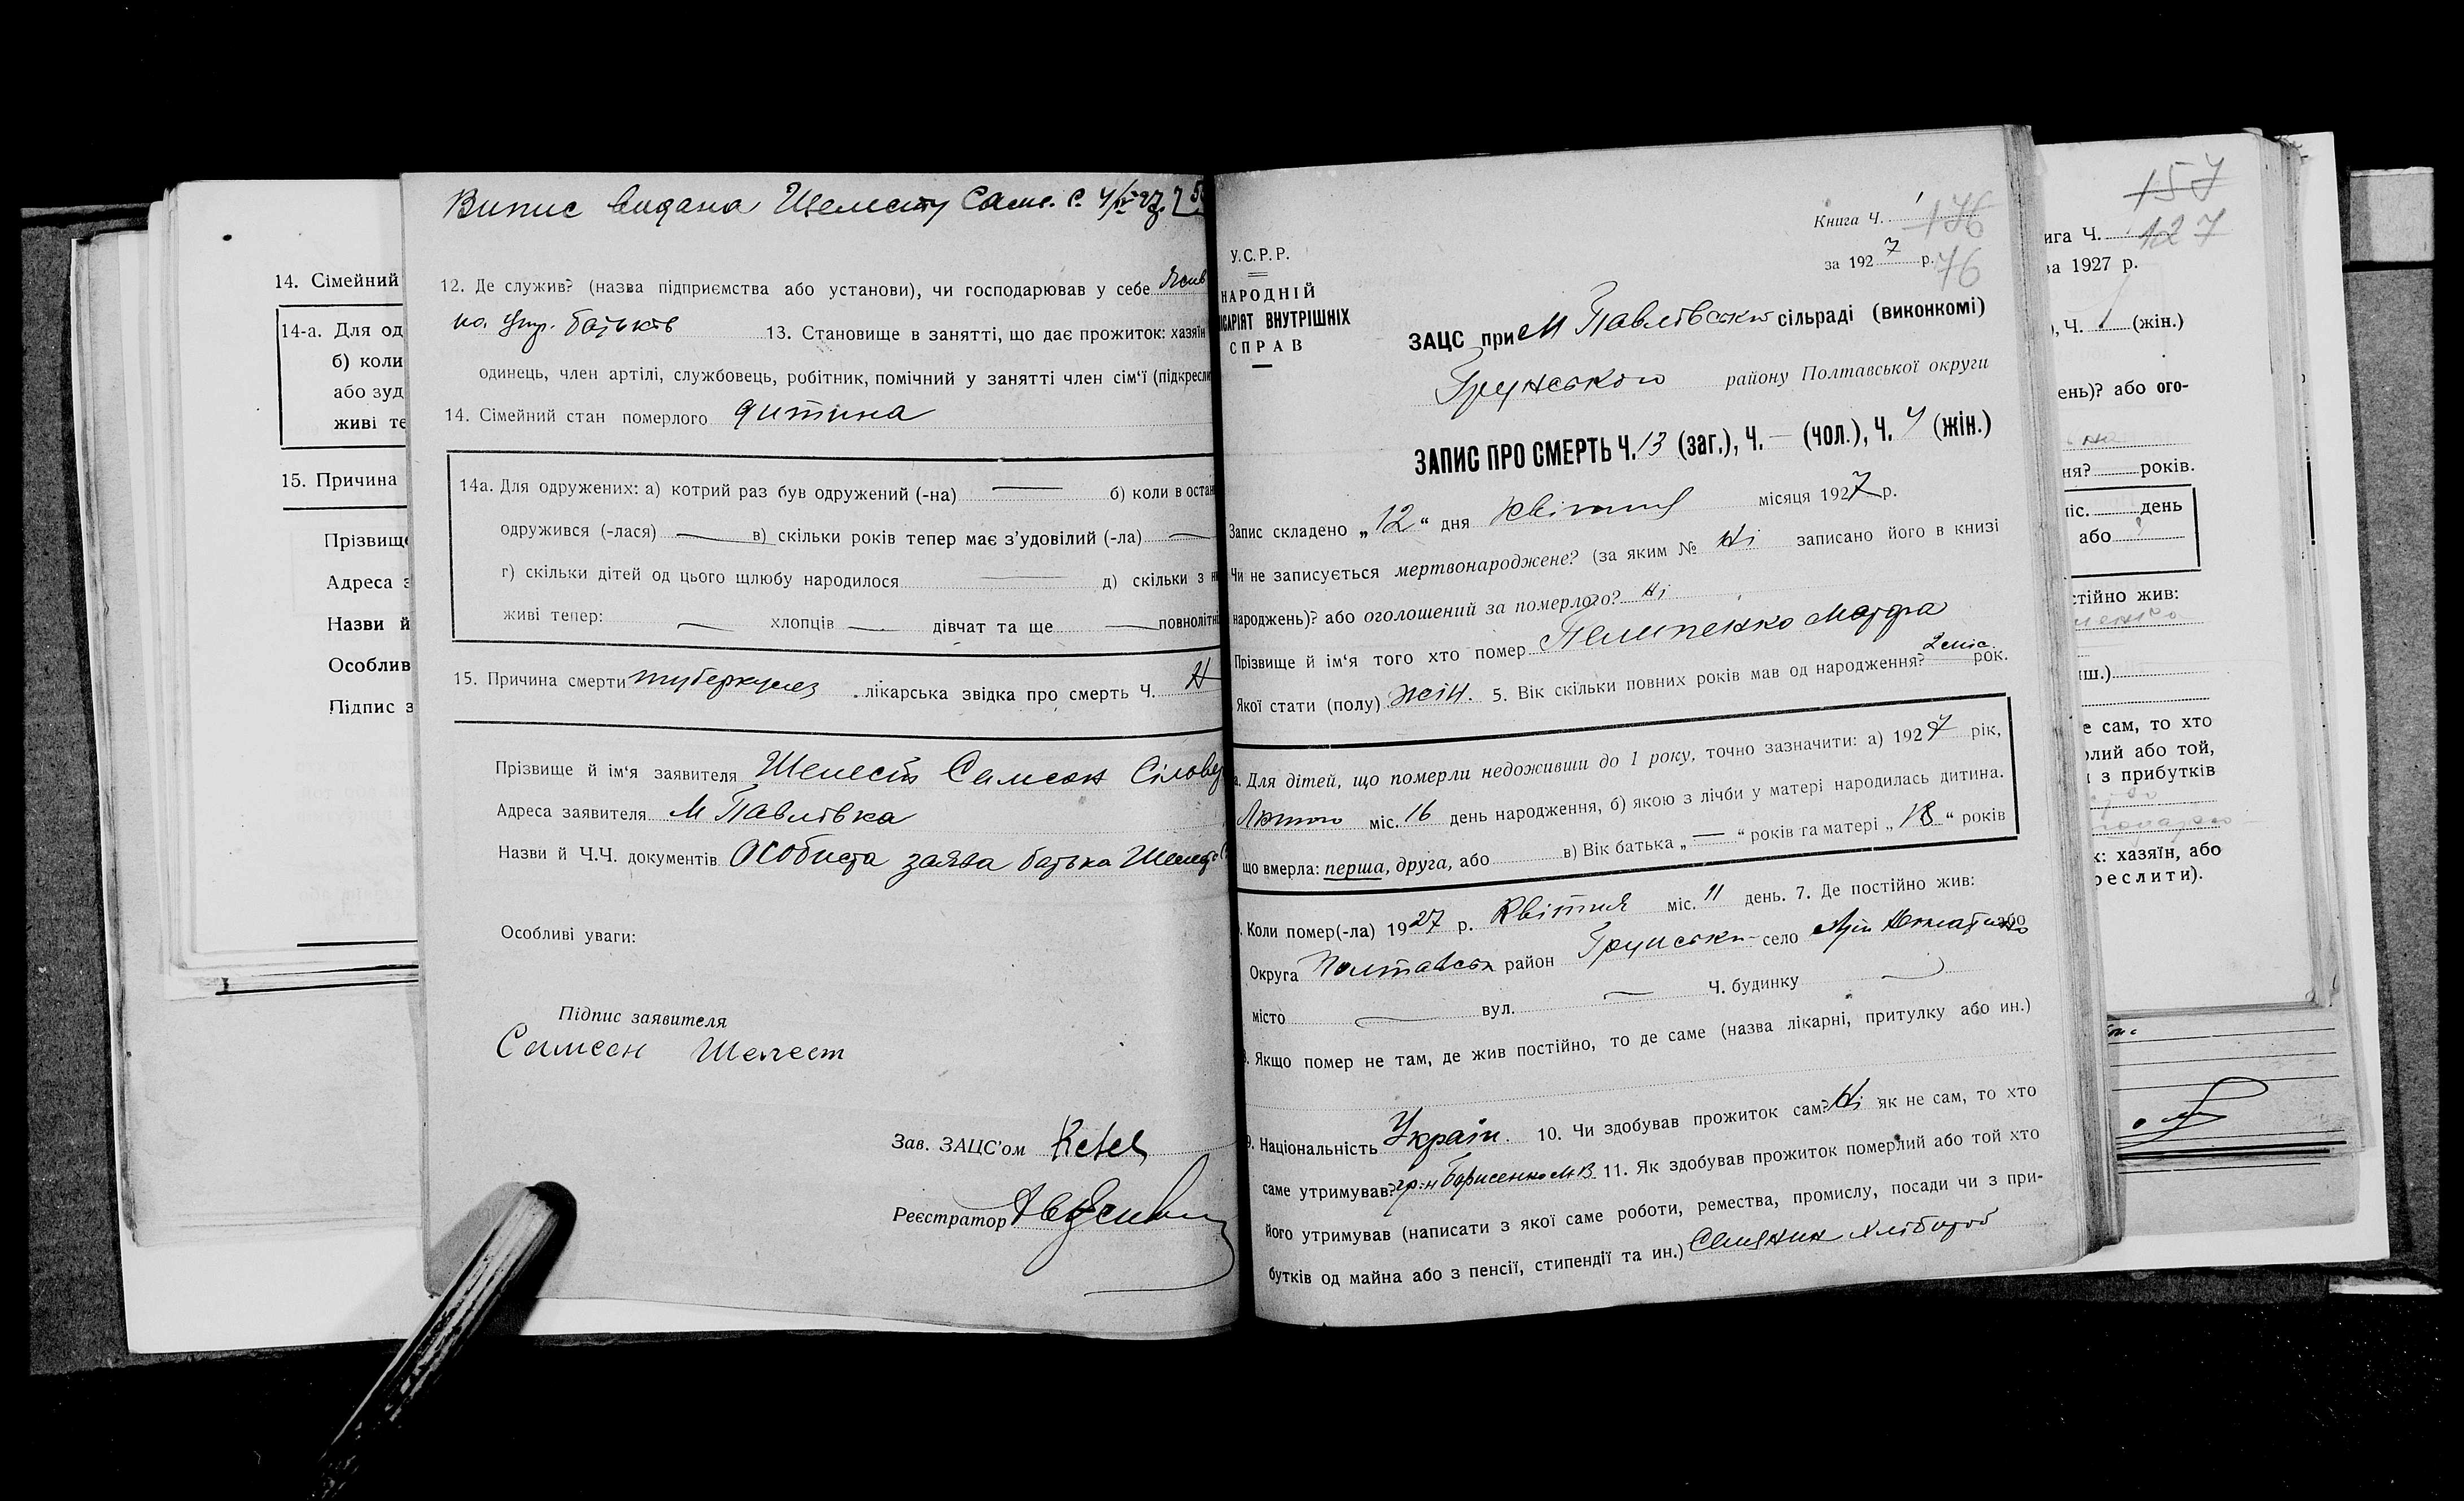 14. Сімейний
14-а. Для од
б) коли
або зуд
живі те
15. Причина
Прізвище
Адреса з
Назви й
Особлив
Підпис з
Випис видана Шелесту Самс. С. 4/IV-27
12. Де служив? (назва підприємства або установи), чи господарював у себе
на утр. батьків 13. Становище в занятті, що дає прожиток: хазяїн
одинець, член артілі, службовець, робітник, помічний у занятті член сім'ї (підкресли
14. Сімейний стан померлого дитина
14а. Для одружених: а) котрий раз був одружений (-на) — б) коли в остан
одружився (-лася) — в) скільки років тепер має з'удовілий (-ла) —
г) скільки дітей од цього щлюбу народилося — д) скільки з н
живі тепер: — хлопців — дівчат та ще — повнолітні
15. Причина смерти туберкульоз лікарська звідка про смерть Ч. Н
Прізвище й ім'я заявителя Шелест Самсон
Адреса заявителя М Павлівка
Назви й Ч.Ч. документів Особиста заява батька
Особливі уваги:
Підпис заявителя
Самсон Шелест
Зав. ЗАЦС'ом
Реєстратор
Книга Ч. 1 176
за 1927 р. 76
У.С.Р.Р.
НАРОДНІЙ
ІСАРІЯТ ВНУТРІШНІХ
СПРАВ
ЗАЦС при М Павлівській сільраді (виконкомі)
Грунського району Полтавської округи
ЗАПИС ПРО СМЕРТЬ Ч. 13 (заг.), Ч. — (чол.), Ч. 4 (жін.)
Запис складено „12“ дня квітня місяця 1927 р.
Чи не записується мертвонароджене? (за яким № Ні записано його в книзі
народжень)? або оголошений за померлого? Ні
Прізвище й ім'я того хто помер Пелипенко Марфа
Якої стати (полу) жін. 5. Вік скільки повних років мав од народження? 2 міс. рок.
а. Для дітей, що померли недоживши до 1 року, точно зазначити: а) 1927 рік,
Лютого міс. 16 день народження, б) якою з лічби у матері народилась дитина.
що вмерла: перша, друга, або в) Вік батька „—“ років та матері „18“ років
Коли помер(-ла) 1927 р. Квітня міс. 11 день. 7. Де постійно жив:
Округа Полтавськ район Грунськи- село або
місто — вул. — Ч. будинку —
Якщо помер не там, де жив постійно, то де саме (назва лікарні, притулку або ин.)
9. Національність Україн. 10. Чи здобував прожиток сам? Ні як не сам, то хто
саме утримував? гр-н Борисенко М В 11. Як здобував прожиток померлий або той хто
його утримував (написати з якої саме роботи, ремества, промислу, посади чи з при-
бутків од майна або з пенсії, стипендії та ин.) Селянин хлібороб
157
ига Ч. 127
за 1927 р.
), Ч. (жін.)
ень)? або ого-
ня? років.
міс. день
або
стійно жив:
иш.)
е сам, то хто
рлий або той,
и з прибутків
к: хазяїн, або
реслити).